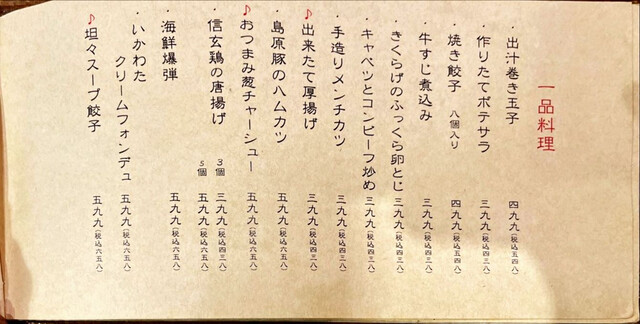 一品料理
・出汁巻き玉子 四九九(税込五四八)
・作りたてポテサラ 三九九(税込四三八)
・焼き餃子 八個入り 四九九(税込五四八)
・牛すじ煮込み 三九九(税込四三八)
・きくらげのふっくら卵とじ 三九九(税込四三八)
・キャベツとコンビーフ炒め 三九九(税込四三八)
・手造りメンチカツ 三九九(税込四三八)
♪出来たて厚揚げ 三九九(税込四三八)
・島原豚のハムカツ 五九九(税込六五八)
♪おつまみ葱チャーシュー 五九九(税込六五八)
・信玄鶏の唐揚げ 3個 三九九(税込四三八)
5個 五九九(税込六五八)
・海鮮爆弾 五九九(税込六五八)
・いかわた
クリームフォンデュ 五九九(税込六五八)
♪坦々スープ餃子 五九九(税込六五八)